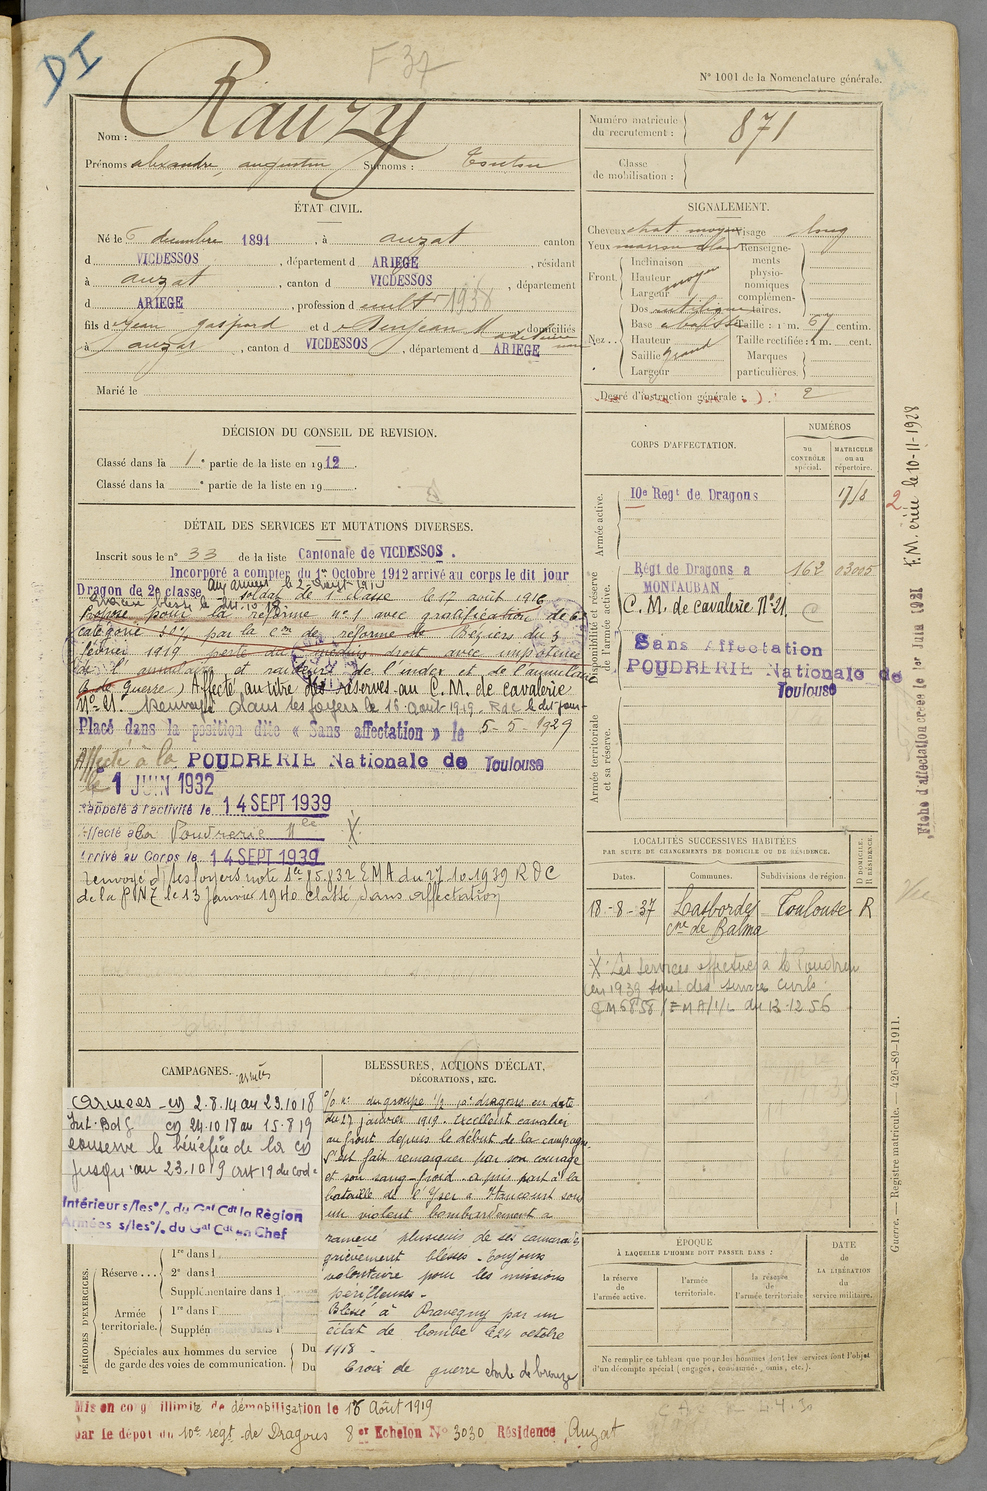 DI
F 37
N° 1001 de la Nomenclature générale.
Nom : Rauzy
Prénoms alexandre, augustin Surnoms :
Numéro matricule du recrutement : 871
Classe de mobilisation :
ÉTAT CIVIL.
Né le 6 décembre 1891, à auzat canton
d VICDESSOS, département d ARIEGE, résidant
à auzat, canton d VICDESSOS, département
d ARIEGE, profession d cult 1938
fils de Jean gaspard et d domiciliés
à auzat, canton d VICDESSOS, département d ARIEGE
Marié le
SIGNALEMENT.
Cheveux chat moyen Visage long
Yeux marron clair Renseignements physionomiques complémentaires.
Front. Inclinaison
Hauteur moyen
Largeur
Nez.. Dos rectiligne
Base abaissée Taille : 1 m. 67 centim.
Hauteur Taille rectifiée : 1 m. cent.
Saillie grand Marques particulières :
Largeur
Degré d'instruction générale : 2
DÉCISION DU CONSEIL DE REVISION.
Classé dans la 1e partie de la liste en 1912.
Classé dans la e partie de la liste en 19
DÉTAIL DES SERVICES ET MUTATIONS DIVERSES.
Inscrit sous le n° 33 de la liste Cantonale de VICDESSOS.
Incorporé à compter du 1er Octobre 1912 arrivé au corps le dit jour
Dragon de 2e classe
soldat de 1e classe le 17 août 1916
Proposé pour la réforme n° 1 avec gratification de 6e
catégorie 20%, par la con de réforme de Béziers du 3
février 1919 perte du médius droit avec impotence
de l'annulaire et raideur de l'index et de l'annulaire
de guerre) Affecté au titre des réserves au C. M. de cavalerie
N° 21. Renvoyé dans ses foyers le 16 août 1919. le dit jour
Placé dans la position dite « Sans affectation » le 5-5-1929
Affecté à la POUDRERIE Nationale de Toulouse
le 1 JUIN 1932
Rappelé à l'activité le 14 SEPT 1939
Affecté à la Poudrerie Nle X
Arrivé au Corps le 14 SEPT 1939
Renvoyé d/ses foyers note 15.832 EMA du 27.10.1939 RDC
de la PNZ le 13 Janvier 1940 classé sans affectation
CORPS D'AFFECTATION.
NUMÉROS
au CONTRÔLE spécial.
MATRICULE ou au répertoire.
Armée active.
10e Regt de Dragons 1718
2
Disponibilité et réserve de l'armée active.
Régt de Dragons à MONTAUBAN 162 03005
C. M. de cavalerie N° 21
Sans Affectation
POUDRERIE Nationale de Toulouse
Armée territoriale et sa réserve.
F.M. créée le 10-11-1928
Fiche d'affectation créée le 1er Juin 1931
LOCALITÉS SUCCESSIVES HABITÉES
PAR SUITE DE CHANGEMENTS DE DOMICILE OU DE RÉSIDENCE.
Dates. Communes. Subdivisions de région. D DOMICILE. R RÉSIDENCE.
18-8-37 Lasbordes cne de Balma Toulouse R
X Les services effectués à la Poudrerie
en 1939 sont des services civils
CM 6858/EMA/1/L du 12.12.56
CAMPAGNES.
armées
Armées - cg 2.8.14 au 23.10.18
Int. cg 24.10.18 au 15.8.19
conserve le bénéfice de la cg
jusqu'au 23.10.19 art 19 du cod
Intérieur s/les o/. du Gal Cdt la Région
Armées s/les o/. du Gal Cdt en Chef
PÉRIODES D'EXERCICES.
Réserve... 1re dans l
2e dans l
Supplémentaire dans l
Armée territoriale. 1re dans l
Supplém
Spéciales aux hommes du service de garde des voies de communication. Du
Du
BLESSURES, ACTIONS D'ÉCLAT, DÉCORATIONS, ETC.
o/o n° du groupe 1/2 10e dragons en date
du 27 janvier 1919. Excellent cavalier
au front depuis le début de la campagne.
S'est fait remarquer par son courage
et son sang-froid. a pris part à la
bataille de l'Yser à sous
un violent bombardement a
ramené plusieurs de ses camarades
grièvement blessés. Toujours
volontaire pour les missions
périlleuses.
Blessé à Dravegny par un
éclat de bombe le 24 octobre
1918.
Croix de guerre étoile de bronze
ÉPOQUE
À LAQUELLE L'HOMME DOIT PASSER DANS :
la réserve de l'armée active.
l'armée territoriale.
la réserve de l'armée territoriale
DATE de LA LIBÉRATION du service militaire.
Ne remplir ce tableau que pour les hommes dont les services font l'objet
d'un décompte spécial (engagés, omis, etc.).
Guerre. — Registre matricule. — 426-89-1911.
Mis en congé illimité de démobilisation le 18 Août 1919
par le dépôt du 10e régt de Dragons 8 er Echelon N° 3030 Résidence Auzat